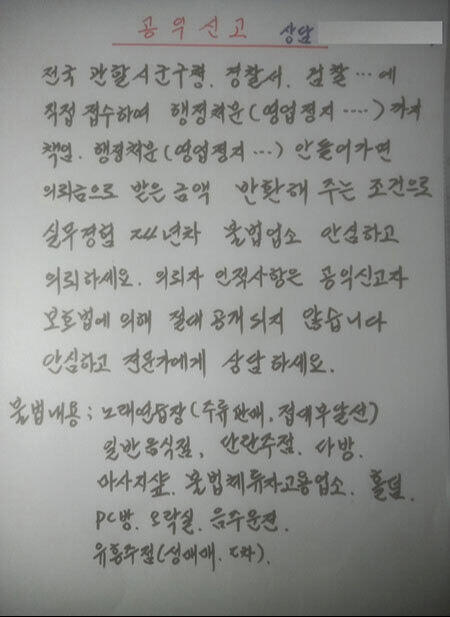 공익신고 상담
전국 관할시군구청. 경찰서. 검찰…에
직접 접수하여 행정처분(영업정지 ····) 까지
책임. 행정처분(영업정지 …) 안들어가면
의뢰금으로 받은 금액 반환해 주는 조건으로
실무경험 14년차 불법업소 안심하고
의뢰하세요. 의뢰자 인적사항은 공익신고자
보호법에 의해 절대 공개되지 않습니다
안심하고 전문가에게 상담하세요.
불법내용; 노래연습장(주류판매, 접대부알선)
일반음식점, 단란주점. 다방.
마사지샾. 불법체류자고용업소. 홀덤.
PC방. 오락실. 음주운전.
유흥주점(성매매. 2차).